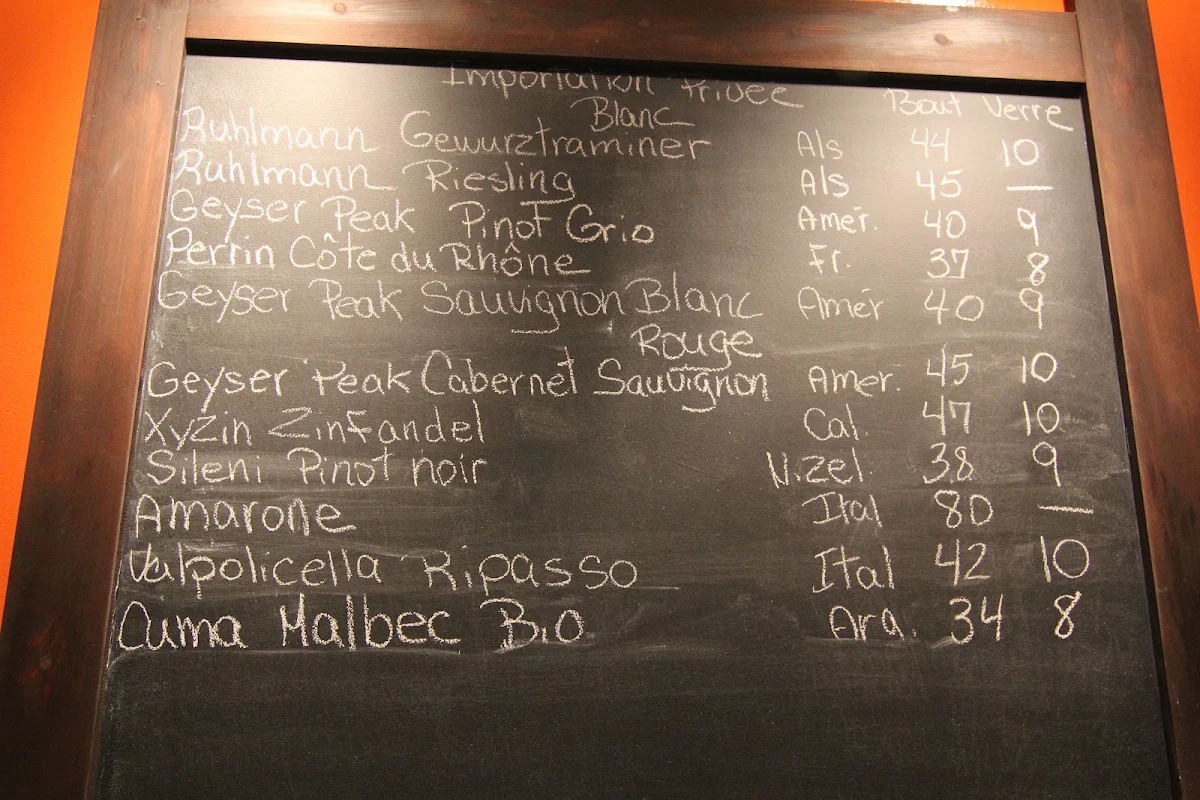 Importation Privée
Blanc Bout Verre
Ruhlmann Gewurztraminer Als 44 10
Ruhlmann Riesling Als 45 —
Geyser Peak Pinot Grio Amér. 40 9
Perrin Côte du Rhône Fr. 37 8
Geyser Peak Sauvignon Blanc Amér 40 9
Rouge
Geyser Peak Cabernet Sauvignon Amer. 45 10
XyZin Zinfandel Cal. 47 10
Sileni Pinot noir N.zel. 38 9
Amarone Ital 80 —
Valpolicella Ripasso Ital 42 10
Cuma Malbec Bio Arg. 34 8